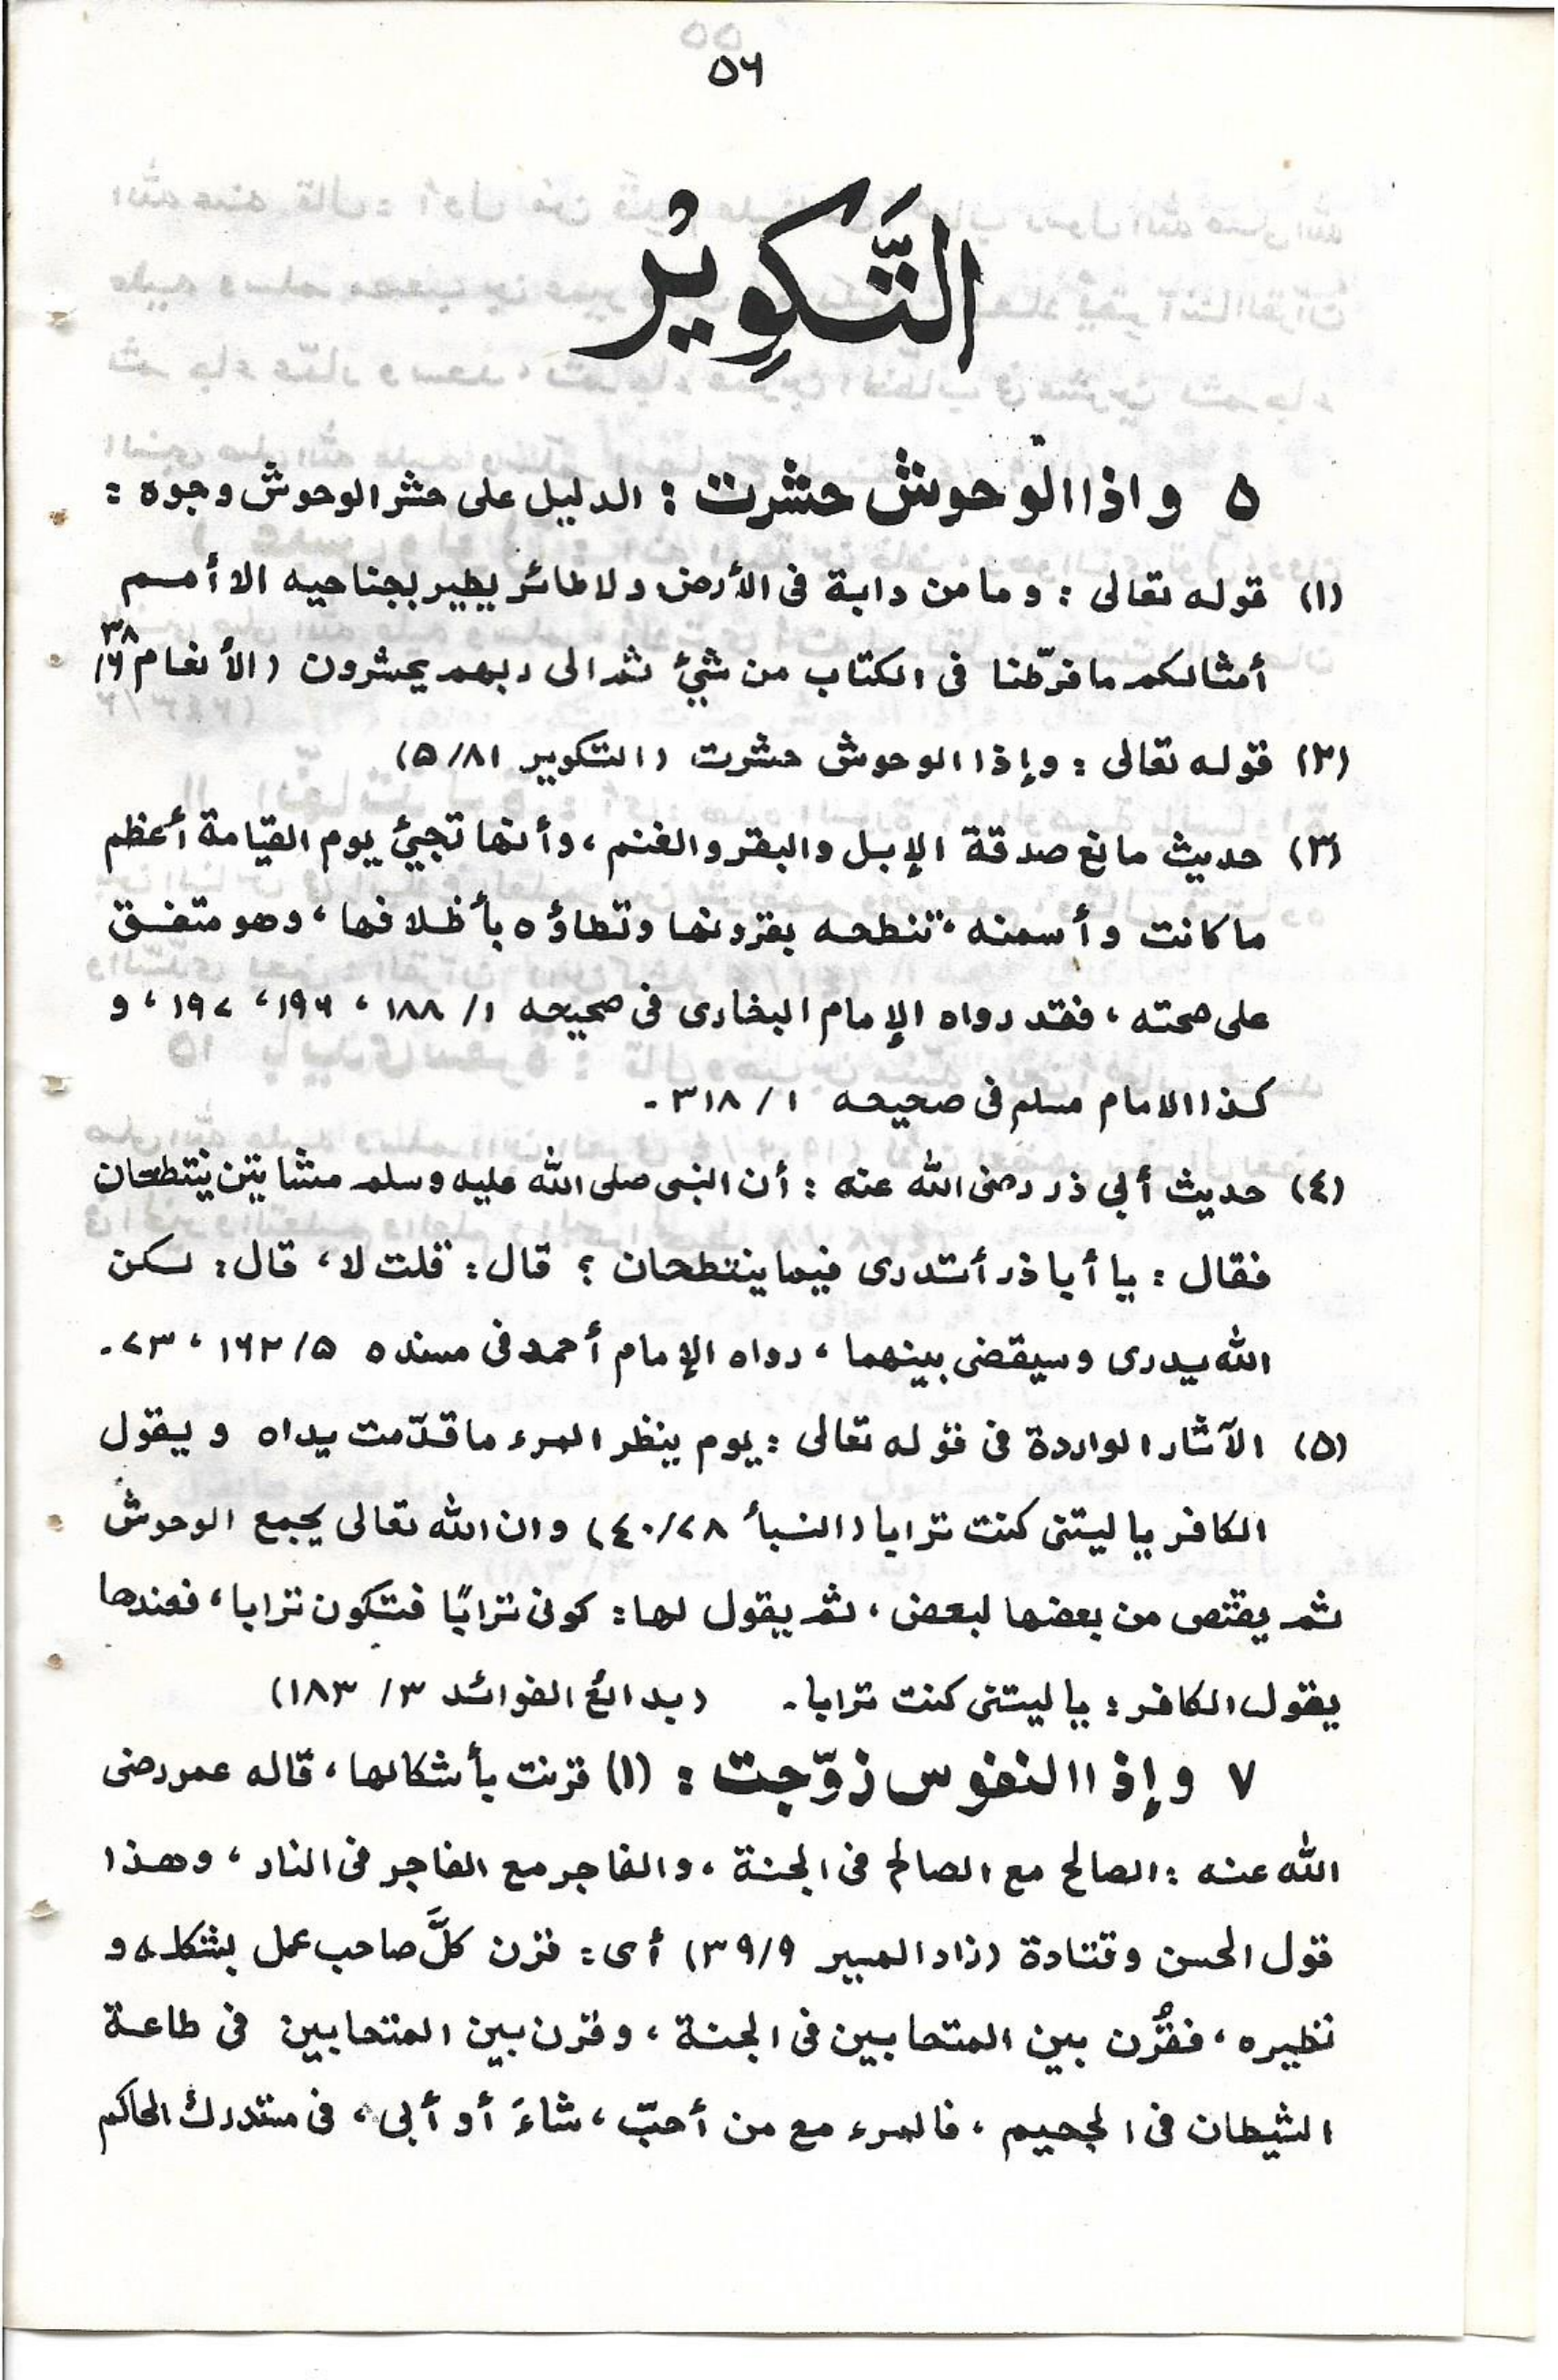 ٥٦
التَّكوِيْر
٥ واذا الوحوش حشرت : الدليل على حشر الوحوش وجوه :
(١) قوله تعالى : وما من دابة فى الأرض ولا طائر يطير بجناحيه الا أمم
أمثالكم ما فرّطنا فى الكتاب من شيئ ثم الى ربهم يحشرون (الأنعام ٦/٣٨)
(٢) قوله تعالى : وإذا الوحوش حشرت (التكوير ٥/٨١)
(٣) حديث مانع صدقة الإبل والبقر والغنم ، وأنها تجيئ يوم القيامة أعظم
ما كانت وأسمنه ، تنطحه بقرونها وتطاؤه بأظلافها ، وهو متفق
على صحته ، فقد رواه الإمام البخارى فى صحيحه ١/ ١٨٨ ، ١٩٦ ، ١٩٧ ، و
كذا الامام مسلم فى صحيحه ١ / ٣١٨ -
(٤) حديث أبي ذر رضى الله عنه : أن النبى صلى الله عليه وسلم مشاتين ينتطحان
فقال : يا أبا ذر أتدرى فيما ينتطحان ؟ قال : قلت لا ، قال : لكن
الله يدرى وسيقضى بينهما ، رواه الإمام أحمد فى مسنده ٥/ ١٦٢ ، ٧٣ -
(٥) الآثار الواردة فى قوله تعالى : يوم ينظر المرء ما قدّمت يداه و يقول
الكافر يا ليتنى كنت ترابا (النبأ ٤٠/٧٨) وان الله تعالى يجمع الوحوش
ثم يقتص من بعضها لبعض ، ثم يقول لها : كونى ترابًا فتكون ترابا ، فعندها
يقول الكافر : يا ليتنى كنت ترابا - (بدائع الفوائد ٣/ ١٨٣)
٧ وإذا النفوس زوّجت : (١) قرنت بأشكالها ، قاله عمر رضى
الله عنه : الصالح مع الصالح فى الجنة ، والفاجر مع الفاجر فى النار ، وهذا
قول الحسن وقتادة (زاد المسير ٣٩/٩) أى : قرن كلَّ صاحب عمل بشكله و
نظيره ، فقُرّن بين المتحابين فى الجنة ، وقرن بين المتحابين فى طاعة
الشيطان فى الجحيم ، فالمرء مع من أحبّ ، شاءَ أو أبى ، فى مستدرك الحاكم